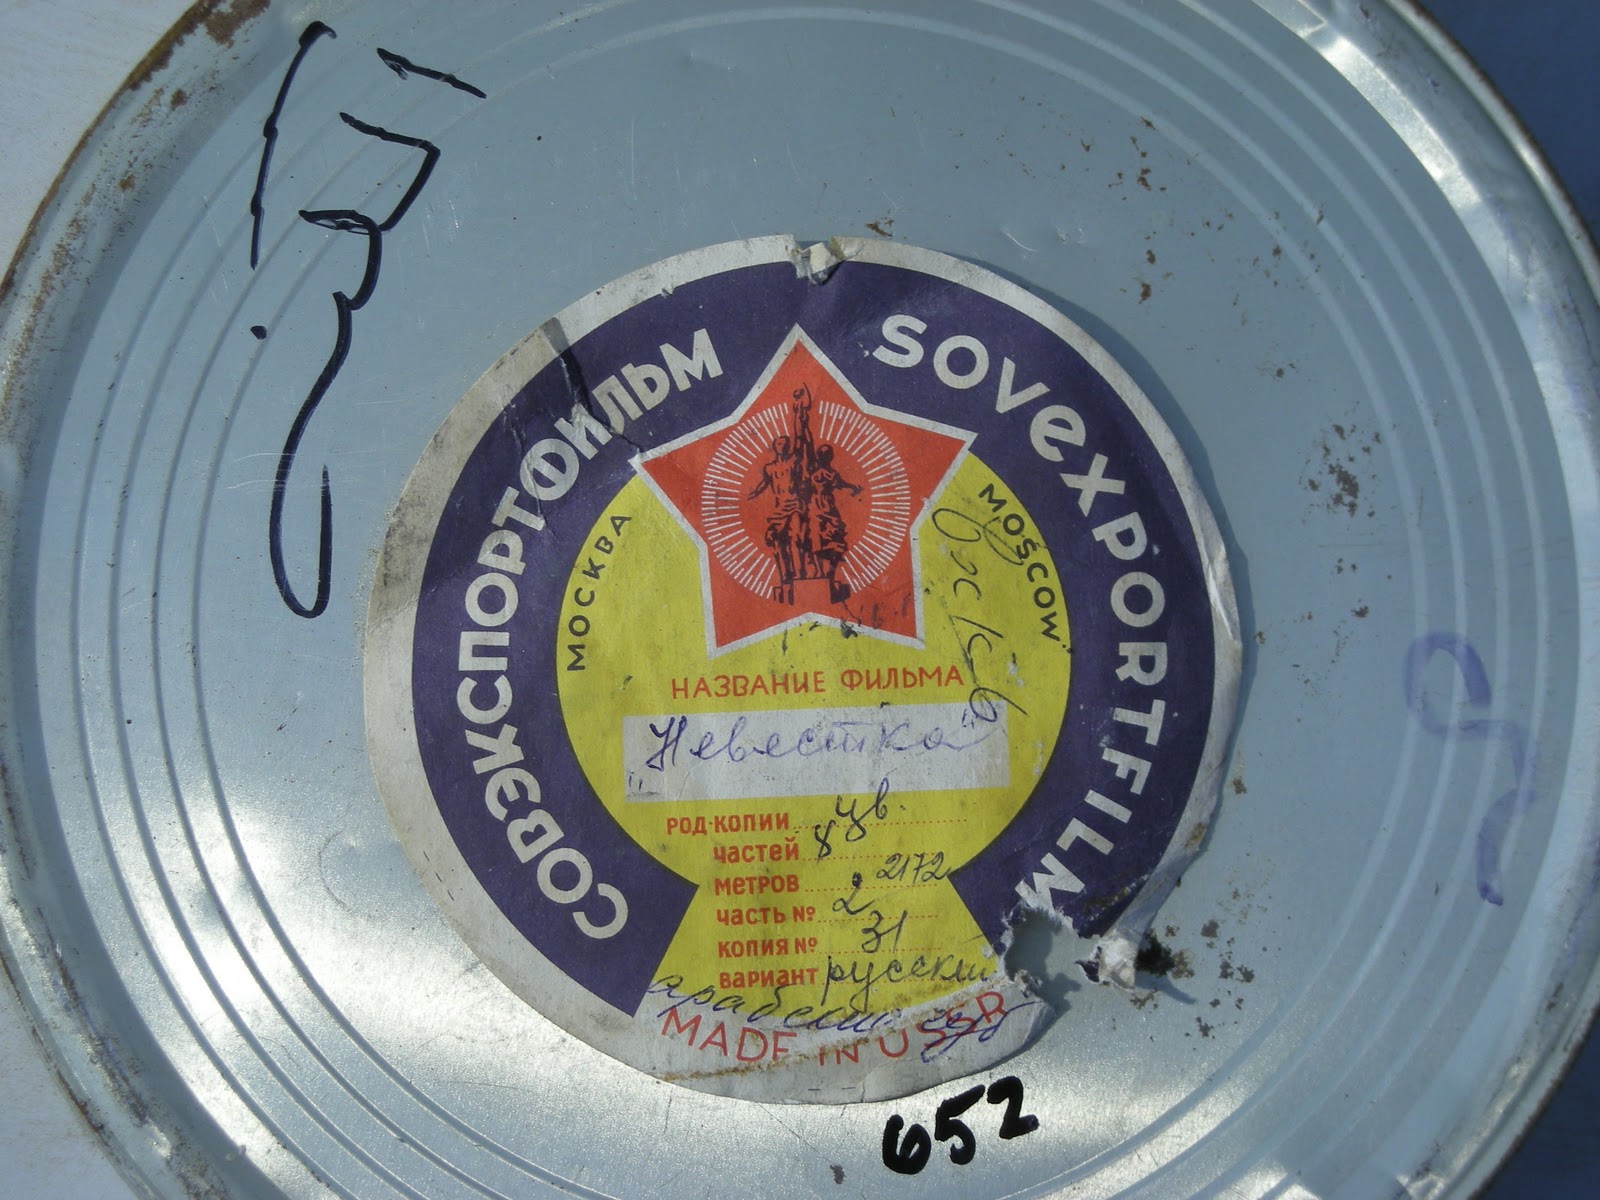 СОВЭКСПОРТФИЛЬМ
SOVEXPORTFILM
МОСКВА
MOSCOW
НАЗВАНИЕ ФИЛЬМА
„Невестка"
РОД-КОПИИ цв.
ЧАСТЕЙ 8
МЕТРОВ 2172
ЧАСТЬ № 2
КОПИЯ № 31
ВАРИАНТ русский
арабские суб
MADE IN USSR
652